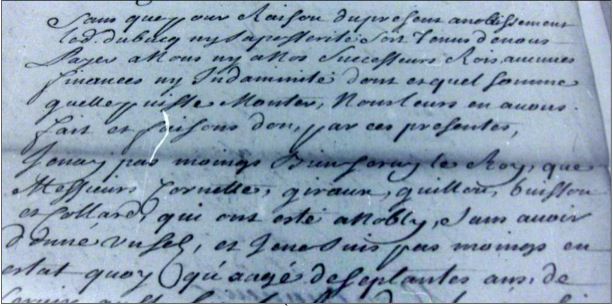 Sans que pour Raison du present anoblissement
led. dubucq ny sa posterité soit tenus de nous
Payer a Nous ny a Nos Successeurs Rois aucunes
finances ny Indamnité dont et quel somme
quelle puisse Monter, Nous leurs en avons
fait et faisons don, par ces presentes,
Jenay pas moings bien servy le Roy, que
Messieurs Cornette, giraux, quillou, buisson
et Collard, qui ont esté anobly, sans avoir
donné un sol, et Jene suis pas moings en
estat quoy qu'aagé de septantes ans, de